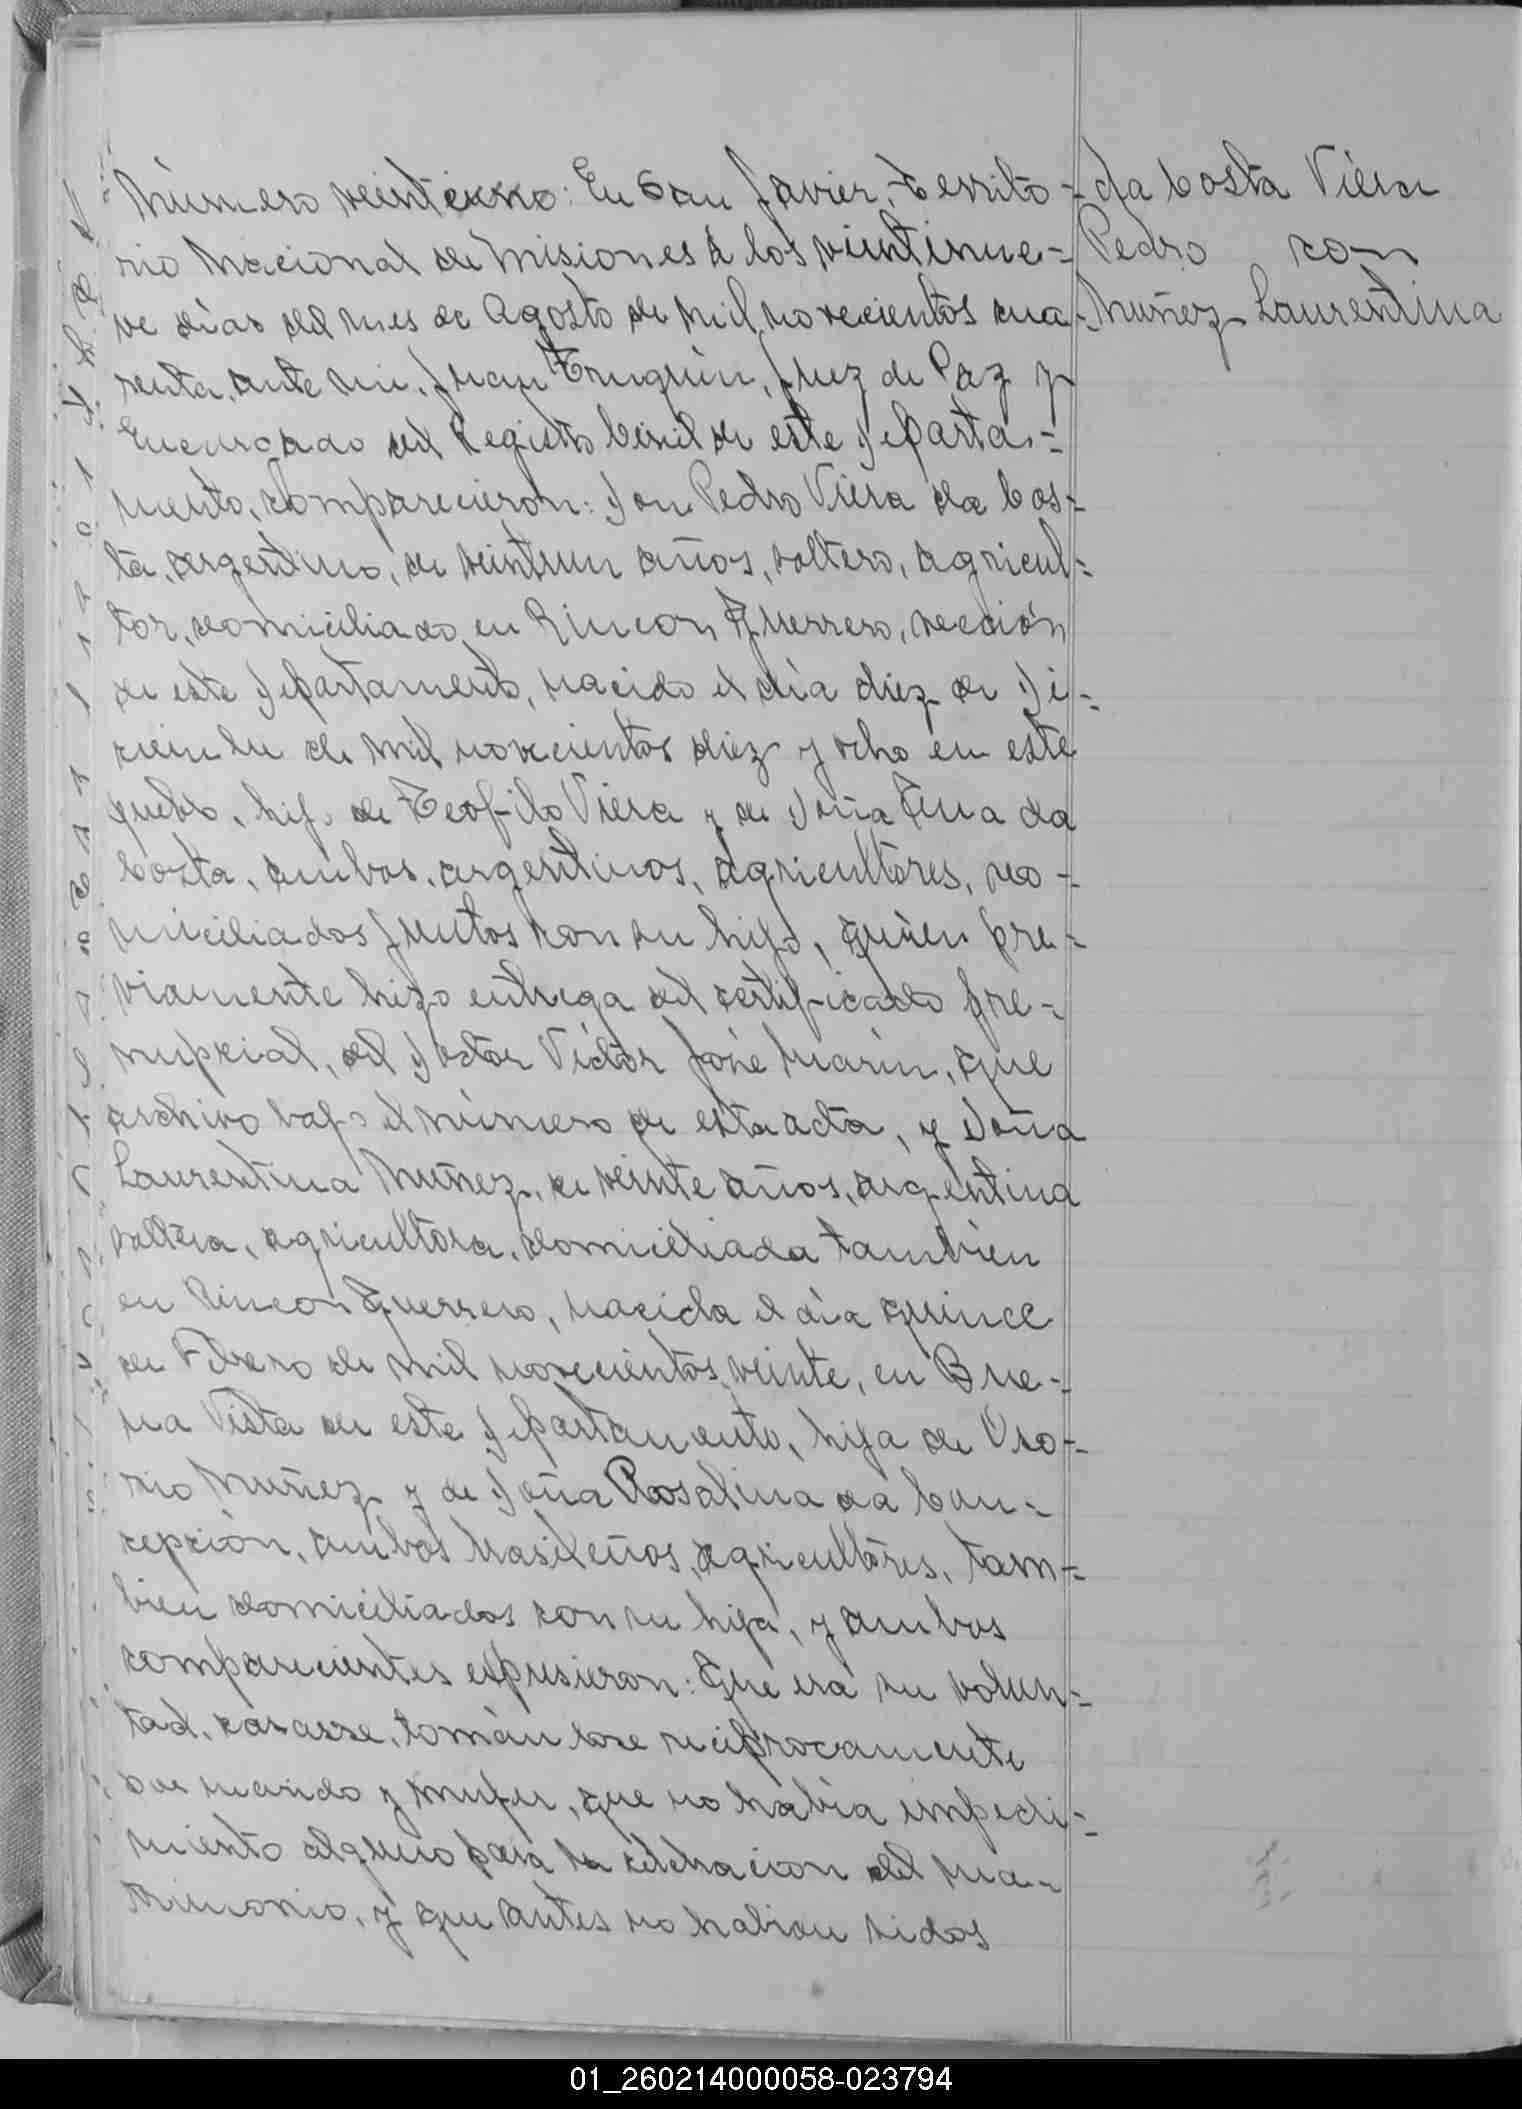 Número veinticinco: En San Javier, Territo-
rio Nacional de Misiones à los veintinue-
ve días del mes de Agosto de mil novecientos cua-
renta, ante mi, Juan Truquin, Juez de Paz y
Encargado del Registro Civil de este Departa-
mento, comparecieron: Don Pedro Viera da Cos-
ta, argentino, de veintiun años, soltero, agricul-
tor, domiciliado en Rincon Guerrero, sección
de este Departamento, nacido el día diez de Di-
ciembre de mil novecientos diez y ocho en este
pueblo, hijo de Teofilo Viera y de Doña Ana da
Costa, ambos argentinos, agricultores, do-
miciliados juntos con su hijo, quien pre-
viamente hizo entrega del certificado pre-
nupcial, del Doctor Victor José Marin, que
archivo bajo el número de esta acta, y Doña
Laurentina Nuñez, de veinte años, argentina
soltera, agricultora, domiciliada tambien
en Rincon Guerrero, nacida el día quince
de Febrero de mil novecientos veinte, en Bue-
na Vista de este Departamento, hija de Oso-
rio Nuñez y de Doña Rosalina da Con-
cepción, ambos brasileños, agricultores, tam-
bien domiciliados con su hija, y ambos
comparecientes expusieron: Que era su volun-
tad, casarse, tomándose reciprocamente
por marido y mujer, que no había impedi-
miento alguno para la celebracion del ma-
trimonio, y que antes no habian sidos
da Costa Viera
Pedro con
Nuñez Laurentina
01_260214000058-023794